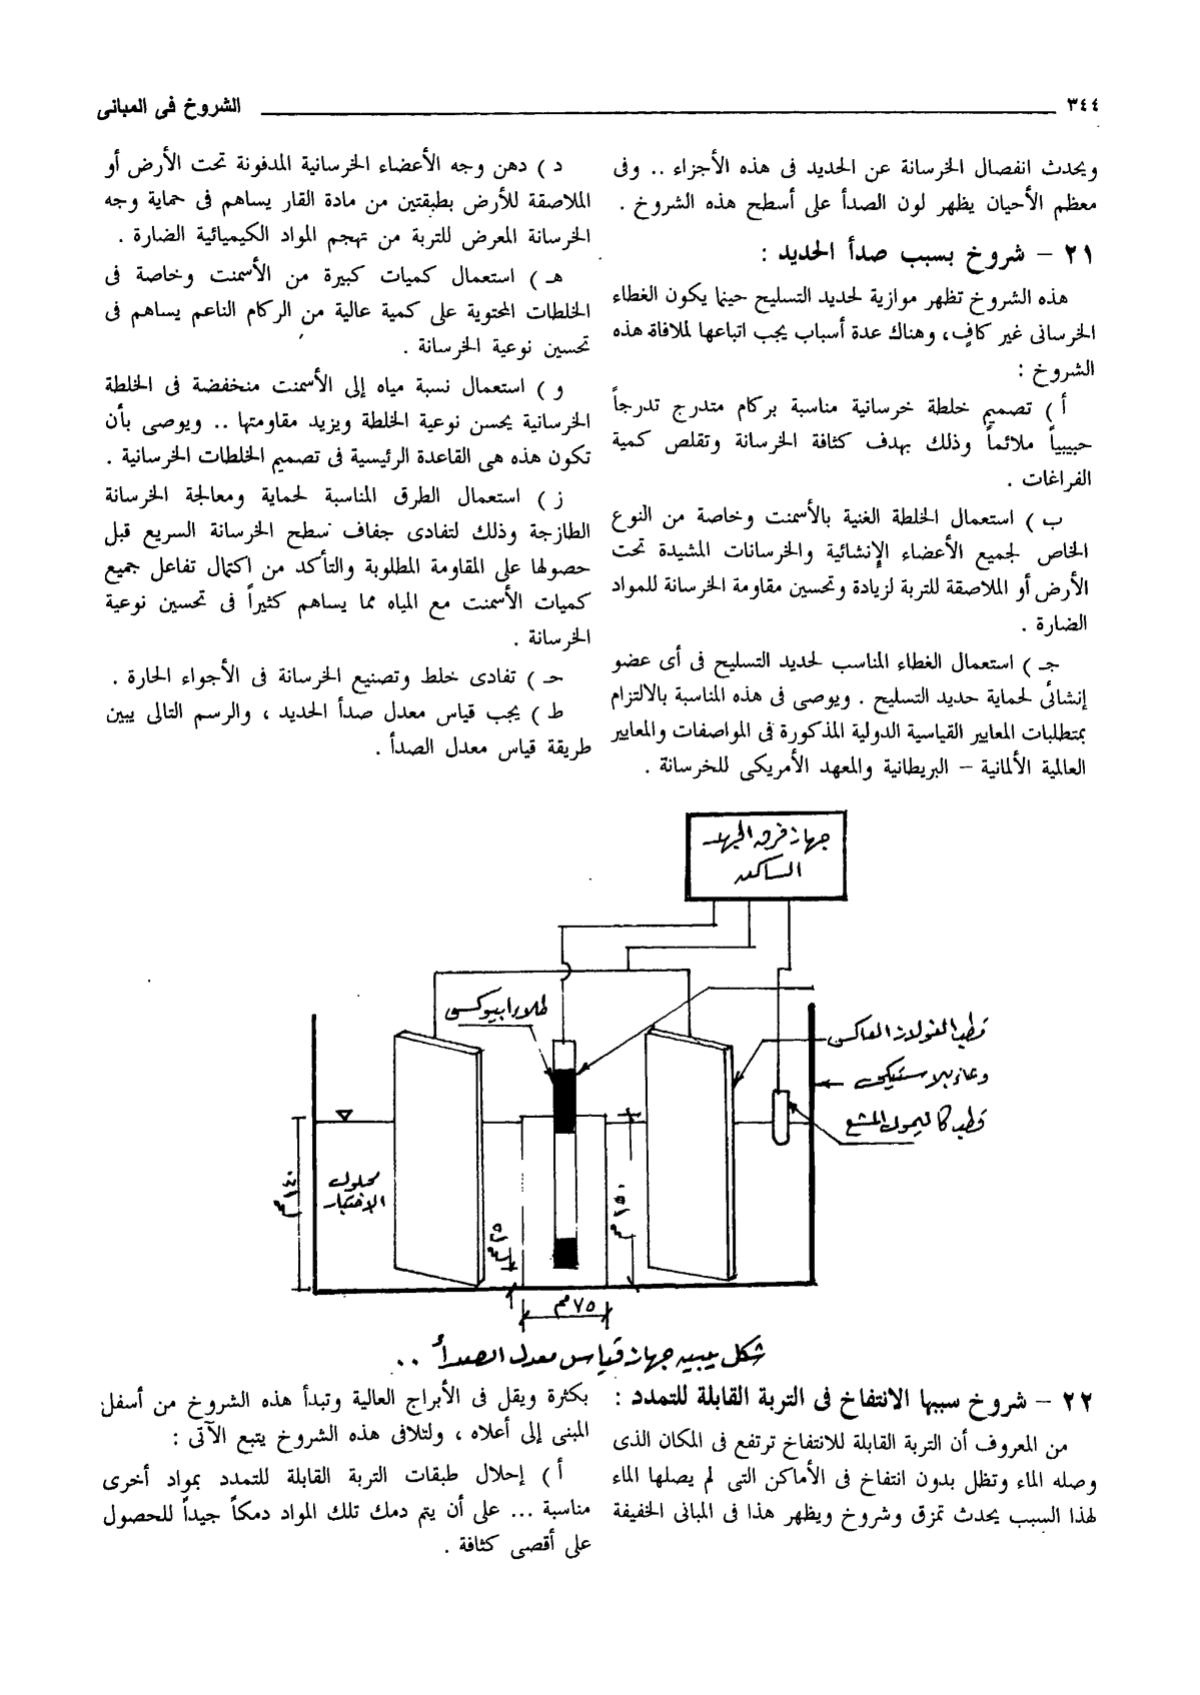 ٣٤٤
الشروخ فى المبانى
ويحدث انفصال الخرسانة عن الحديد فى هذه الأجزاء .. وفى
معظم الأحيان يظهر لون الصدأ على أسطح هذه الشروخ .
٢١ – شروخ بسبب صدأ الحديد :
هذه الشروخ تظهر موازية لحديد التسليح حينما يكون الغطاء
الخرسانى غير كافٍ، وهناك عدة أسباب يجب اتباعها لملافاة هذه
الشروخ :
أ ) تصميم خلطة خرسانية مناسبة بركام متدرج تدرجاً
حبيبياً ملائماً وذلك بهدف كثافة الخرسانة وتقلص كمية
الفراغات .
ب ) استعمال الخلطة الغنية بالأسمنت وخاصة من النوع
الخاص لجميع الأعضاء الإنشائية والخرسانات المشيدة تحت
الأرض أو الملاصقة للتربة لزيادة وتحسين مقاومة الخرسانة للمواد
الضارة .
جـ ) استعمال الغطاء المناسب لحديد التسليح فى أى عضو
إنشائى لحماية حديد التسليح . ويوصى فى هذه المناسبة بالالتزام
بمتطلبات المعايير القياسية الدولية المذكورة فى المواصفات والمعايير
العالمية الألمانية – البريطانية والمعهد الأمريكى للخرسانة .
د ) دهن وجه الأعضاء الخرسانية المدفونة تحت الأرض أو
الملاصقة للأرض بطبقتين من مادة القار يساهم فى حماية وجه
الخرسانة المعرض للتربة من تهجم المواد الكيميائية الضارة .
هـ ) استعمال كميات كبيرة من الأسمنت وخاصة فى
الخلطات المحتوية على كمية عالية من الركام الناعم يساهم فى
تحسين نوعية الخرسانة .
و ) استعمال نسبة مياه إلى الأسمنت منخفضة فى الخلطة
الخرسانية يحسن نوعية الخلطة ويزيد مقاومتها .. ويوصى بأن
تكون هذه هى القاعدة الرئيسية فى تصميم الخلطات الخرسانية .
ز ) استعمال الطرق المناسبة لحماية ومعالجة الخرسانة
الطازجة وذلك لتفادى جفاف سطح الخرسانة السريع قبل
حصولها على المقاومة المطلوبة والتأكد من اكتمال تفاعل جميع
كميات الأسمنت مع المياه مما يساهم كثيراً فى تحسين نوعية
الخرسانة .
حـ ) تفادى خلط وتصنيع الخرسانة فى الأجواء الحارة .
ط ) يجب قياس معدل صدأ الحديد ، والرسم التالى يبين
طريقة قياس معدل الصدأ .
جهاز فرق الجهد
الساكن
طلاء ابيوكسى
قطب الفولاذ العاكس
وعاء بلاستيكى
قطب كاليمول المشبع
محلول
الاختبار
١٤٠مم
١٥٠مم
١٥مم
٧٥مم
شكل يبين جهاز قياس معدل الصدأ ..
٢٢ – شروخ سببها الانتفاخ فى التربة القابلة للتمدد :
من المعروف أن التربة القابلة للانتفاخ ترتفع فى المكان الذى
وصله الماء وتظل بدون انتفاخ فى الأماكن التى لم يصلها الماء
لهذا السبب يحدث تمزق وشروخ ويظهر هذا فى المبانى الخفيفة
بكثرة ويقل فى الأبراج العالية وتبدأ هذه الشروخ من أسفل
المبنى إلى أعلاه ، ولتلافى هذه الشروخ يتبع الآتى :
أ ) إحلال طبقات التربة القابلة للتمدد بمواد أخرى
مناسبة ... على أن يتم دمك تلك المواد دمكاً جيداً للحصول
على أقصى كثافة .